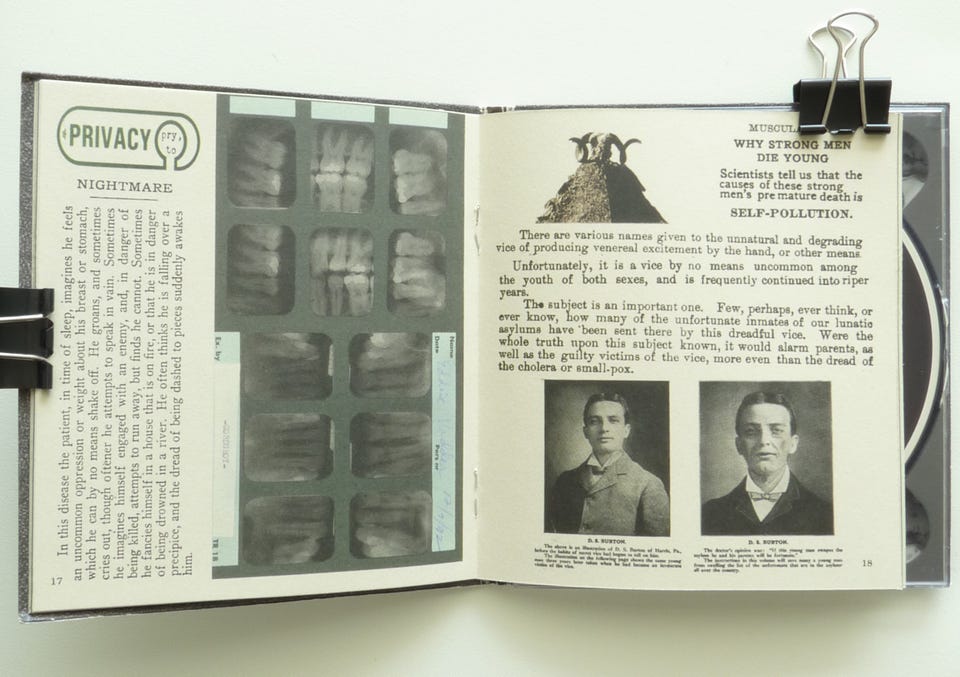 PRIVACY
pry,
to
NIGHTMARE
In this disease the patient, in time of sleep, imagines he feels
an uncommon oppression or weight about his breast or stomach,
which he can by no means shake off. He groans, and sometimes
cries out, though oftener he attempts to speak in vain. Sometimes
he imagines himself engaged with an enemy, and, in danger of
being killed, attempts to run away, but finds he cannot. Sometimes
he fancies himself in a house that is on fire, or that he is in danger
of being drowned in a river. He often thinks he is falling over a
precipice, and the dread of being dashed to pieces suddenly awakes
him.
17
Name
Date
Ex. by
WHY STRONG MEN
DIE YOUNG
Scientists tell us that the
causes of these strong
men's pre mature death is
SELF-POLLUTION.
There are various names given to the unnatural and degrading
vice of producing venereal excitement by the hand, or other means.
Unfortunately, it is a vice by no means uncommon among
the youth of both sexes, and is frequently continued into riper
years.
The subject is an important one. Few, perhaps, ever think, or
ever know, how many of the unfortunate inmates of our lunatic
asylums have been sent there by this dreadful vice. Were the
whole truth upon this subject known, it would alarm parents, as
well as the guilty victims of the vice, more even than the dread of
the cholera or small-pox.
D. S. BURTON.
The above is an illustration of D. S. Burton of Harris, Pa.,
before the habits of secret vice had begun to tell on him.
The illustration on the following page shows the same young
man three years later taken when he had become an inveterate
victim of the vice.
D. S. BURTON.
The doctor's opinion was: "If this young man escapes the
asylum he and his parents will be fortunate."
The instructions in this volume will save many a young man
from swelling the list of the unfortunate that are in the asylums
all over the country.
18